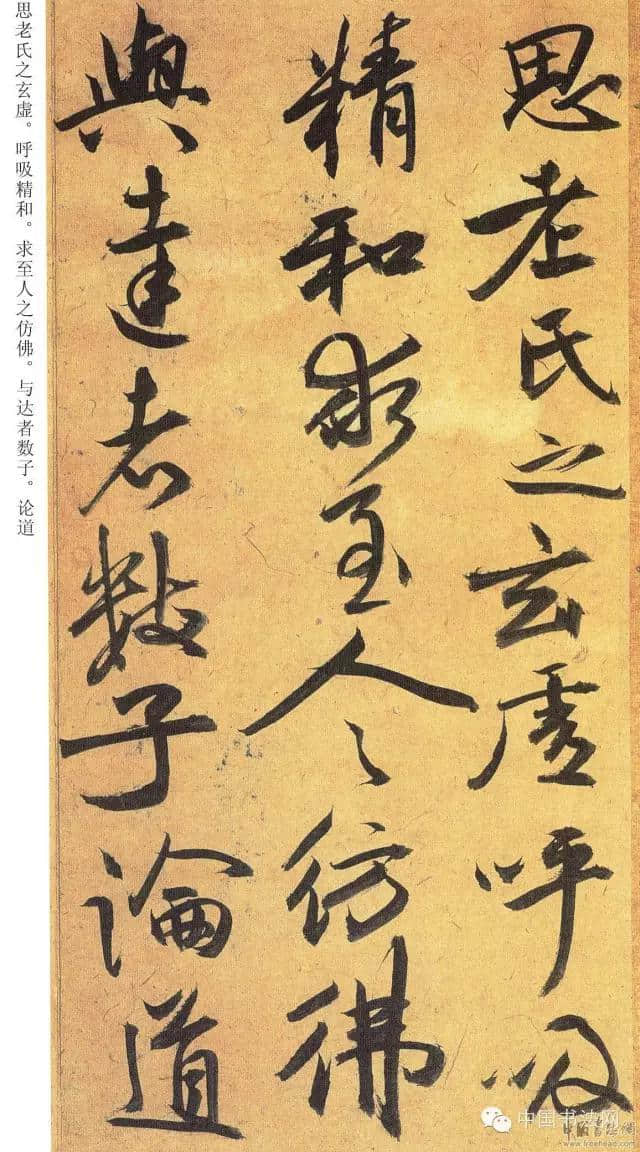 思老氏之玄虚呼吸
精和求至人之仿佛
與達者數子論道
思老氏之玄虚。呼吸精和。求至人之仿佛。与达者数子。论道
中国书法网
www.freehead.com